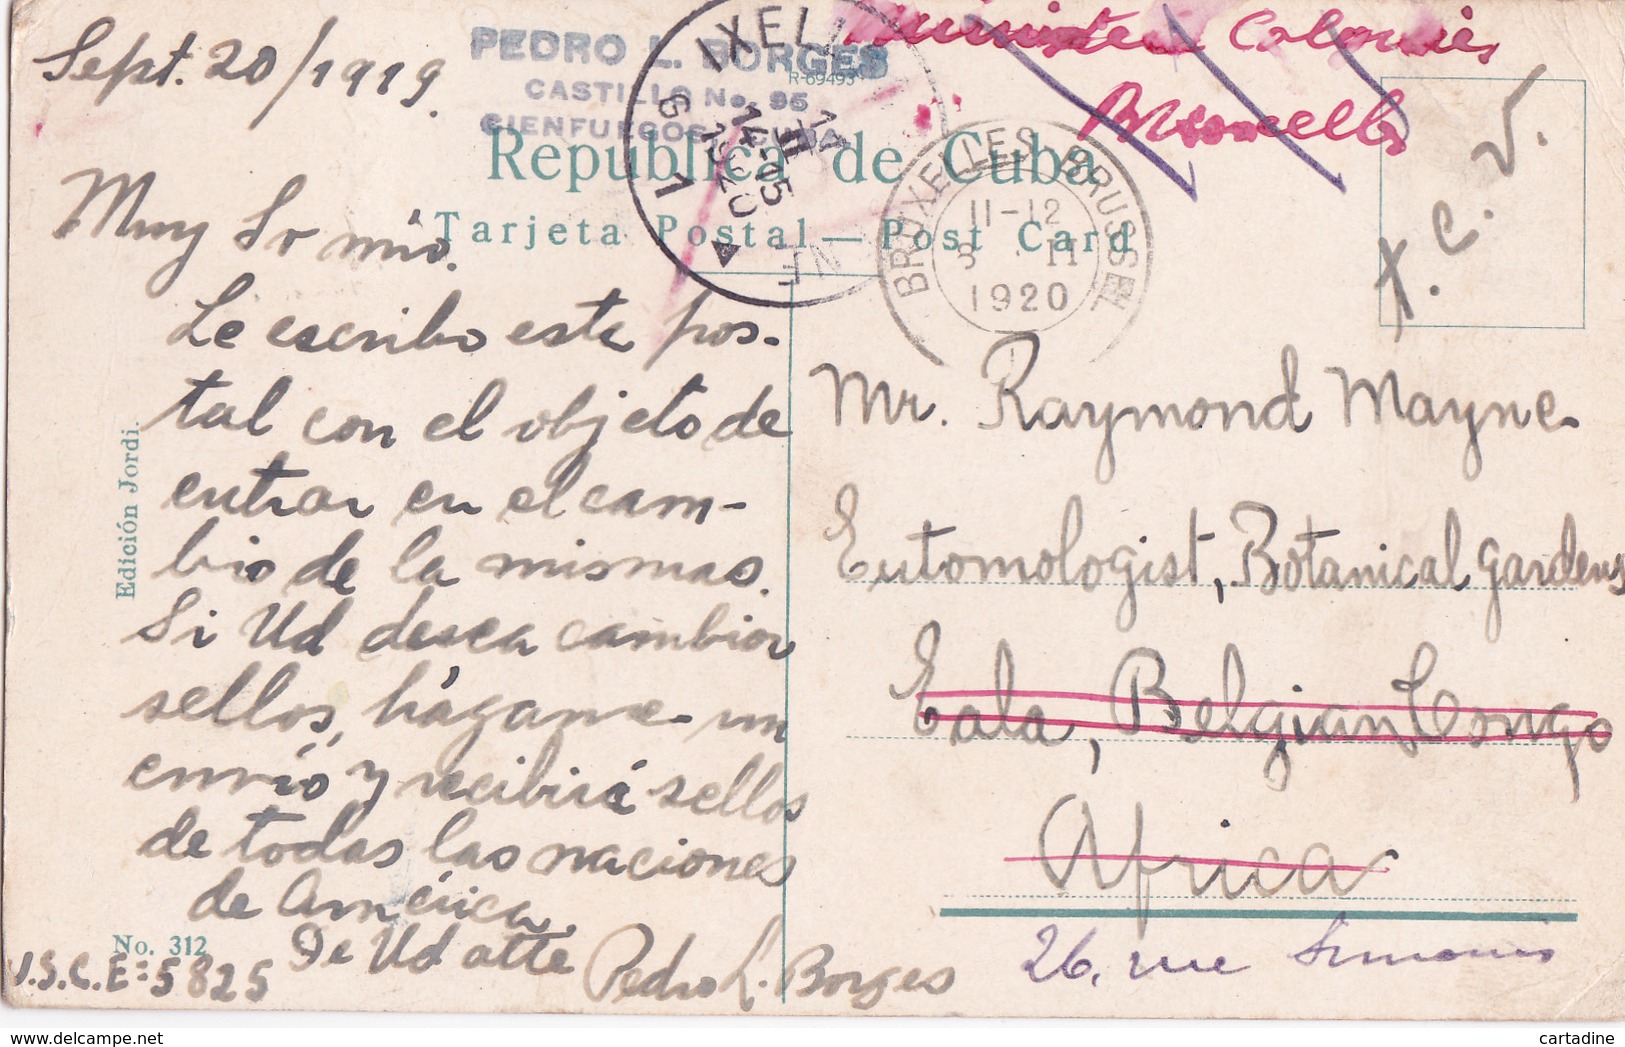 Sept. 20/1919.
PEDRO L. BORGES
CASTILLO No. 95
CIENFUEGOS, CUBA
R-69493
Republica de Cuba
Tarjeta Postal — Post Card
IXELL
14-15
1920
BRUXELLES BRUSSEL
11-12
8 · II
1920
Ministère Colonies
Bruxelles
X. C. V.
Muy Sr mío.
Le escribo esta pos-
tal con el objeto de
entrar en el cam-
bio de la mismas.
Si Ud desea cambiar
sellos, hágame un
envío y recibirá sellos
de todas las naciones
de América.
De Ud atte
Pedro L. Borges
I.S.C.E=5825
Edición Jordi.
No. 312
Mr. Raymond Mayne
Entomologist, Botanical Gardens
Eala, Belgian Congo
Africa
26, rue Simonis
cartadine